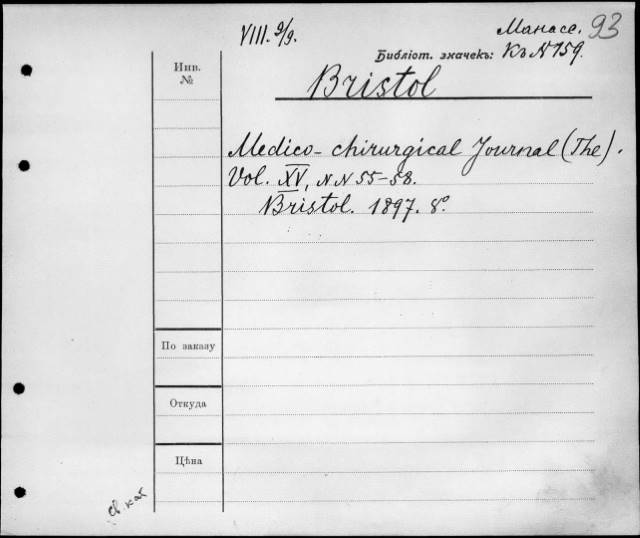 VIII. 9/9.
Манасе. 93
Библіот. значекъ: Къ N 159.
Инв.
№
Bristol
Medico-chirurgical Journal (The).
Vol. XV, NN 55-58.
Bristol. 1897. 8°.
По заказу
Откуда
Цѣна
св. кат